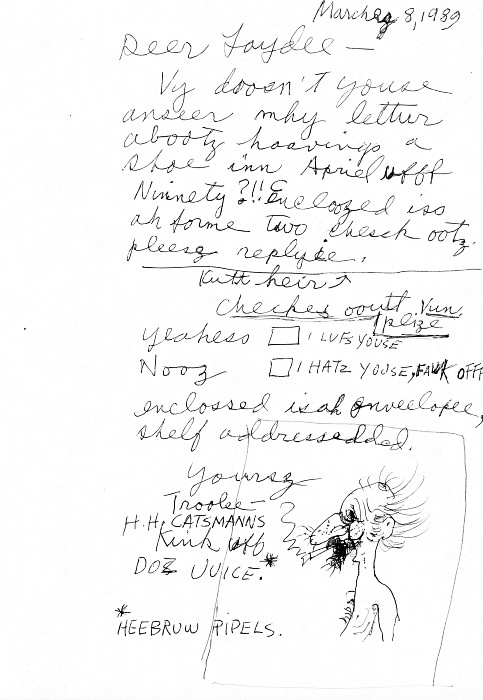 Marcheg 8, 1989
Deer Laydee —
Vy doosn't youse
anseer mhy lettur
abootz hoavings a
shoe inn Apriel ufff
Ninnety?!! Encloozed iso
ah forme two chesch ootz.
pleesg replyie.
Kutt heir ↑
Cheches ooutt Yun
pleize
Yeahess □ I LUFS YOUSE
Nooz □ I HATZ YOUSE, FAUK OFFF
enclossed is ah Enveelopee,
shelf addressedded.
Yoursz
Troolee—
H.H. CATSMANNS
Kink uff
DOZ UUICE.*
*
HEEBRUW PIPELS.